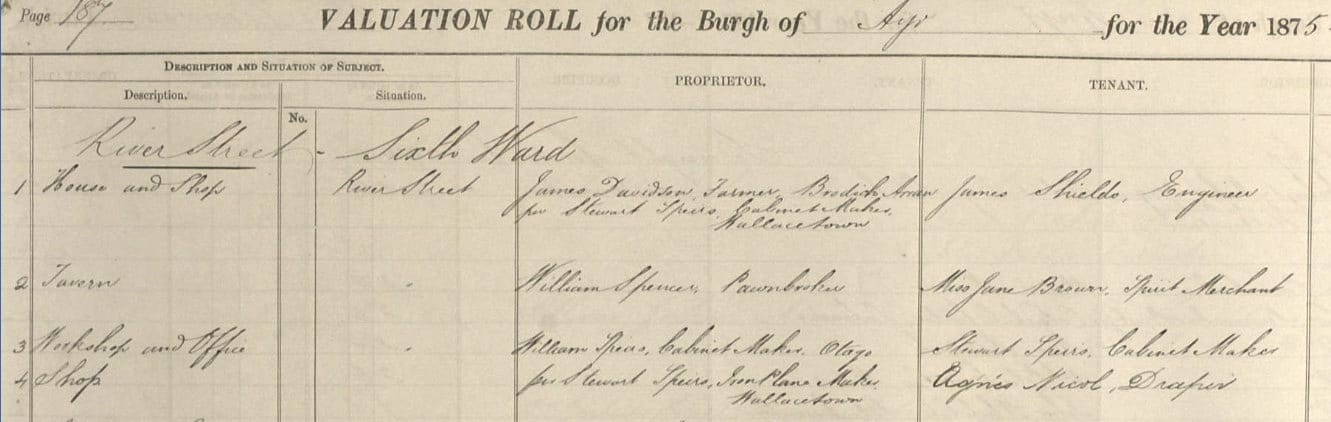 Page 187 VALUATION ROLL for the Burgh of Ayr for the Year 1875
DESCRIPTION AND SITUATION OF SUBJECT. PROPRIETOR. TENANT.
Description. Situation.
No.
River Street - Sixth Ward
1 House and Shop River Street James Davidson, Farmer, Brodick Arran James Shields, Engineer
per Stewart Speirs, Cabinet Maker,
Wallacetown
2 Tavern " William Spencer, Pawnbroker Miss Jane Brown, Spirit Merchant
3 Workshop and Office " William Speirs, Cabinet Maker, Otago Stewart Speirs, Cabinet Maker
4 Shop per Stewart Speirs, Iron Plane Maker, Agnes Nicol, Draper
Wallacetown